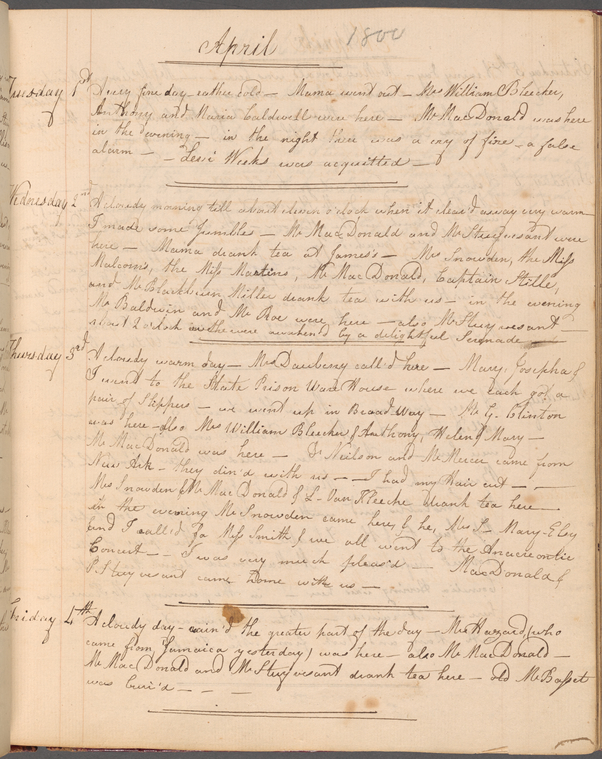 April 1800
Tuesday 1st A very fine day rather cold — Mama went out — Mrs William Bleecker,
Anthony and Maria Caldwell were here — Mr MacDonald was here
in the evening — in the night there was a cry of fire — a false
alarm — — Levi Weeks was acquitted —
Wednesday 2nd A cloudy morning till about eleven o'clock when it clear'd away very warm
I made some Jumbles — Mr MacDonald and Mr Stuyvesant were
here — Mama drank tea at James's — Mrs Snowden, the Miss
Malcoms, the Miss Masters, Mr MacDonald, Captain Stille,
and Mr Blackburn Miller drank tea with us — in the evening
Mr Baldwin and Mr Roe were here — also Mr Stuyvesant —
about 2 o'clock in the were awaken'd by a delightful Serenade —
Thursday 3rd A cloudy warm day — Mrs Dewberry call'd here — Mary, Josepha &
I went to the State Prison Ware House where we each got a
pair of Slippers — we went up in Broad Way — Mr G. Clinton
was here also Mrs William Bleecker & Anthony, Helen & Mary —
Mr MacDonald was here — Dr Neilson and Mr Mercer came from
New Ark — they din'd with us — — I had my Hair cut — , —
Mrs Snowden & Mr MacDonald & L. Van Kleecke drank tea here —
in the evening Mr Snowden came here, & he, Mrs S— Mary Elsy
and I call'd for Miss Smith & we all went to the Anacreontic
Concert — I was very much pleas'd — MacDonald &
P. Stuyvesant came home with us —
Friday 4th A cloudy day — rain'd the greater part of the day — Mr Hazard (who
came from Jamaica yesterday) was here — also Mr MacDonald —
Mr MacDonald and Mr Stuyvesant drank tea here — old Mr Basset
was buri'd — — —